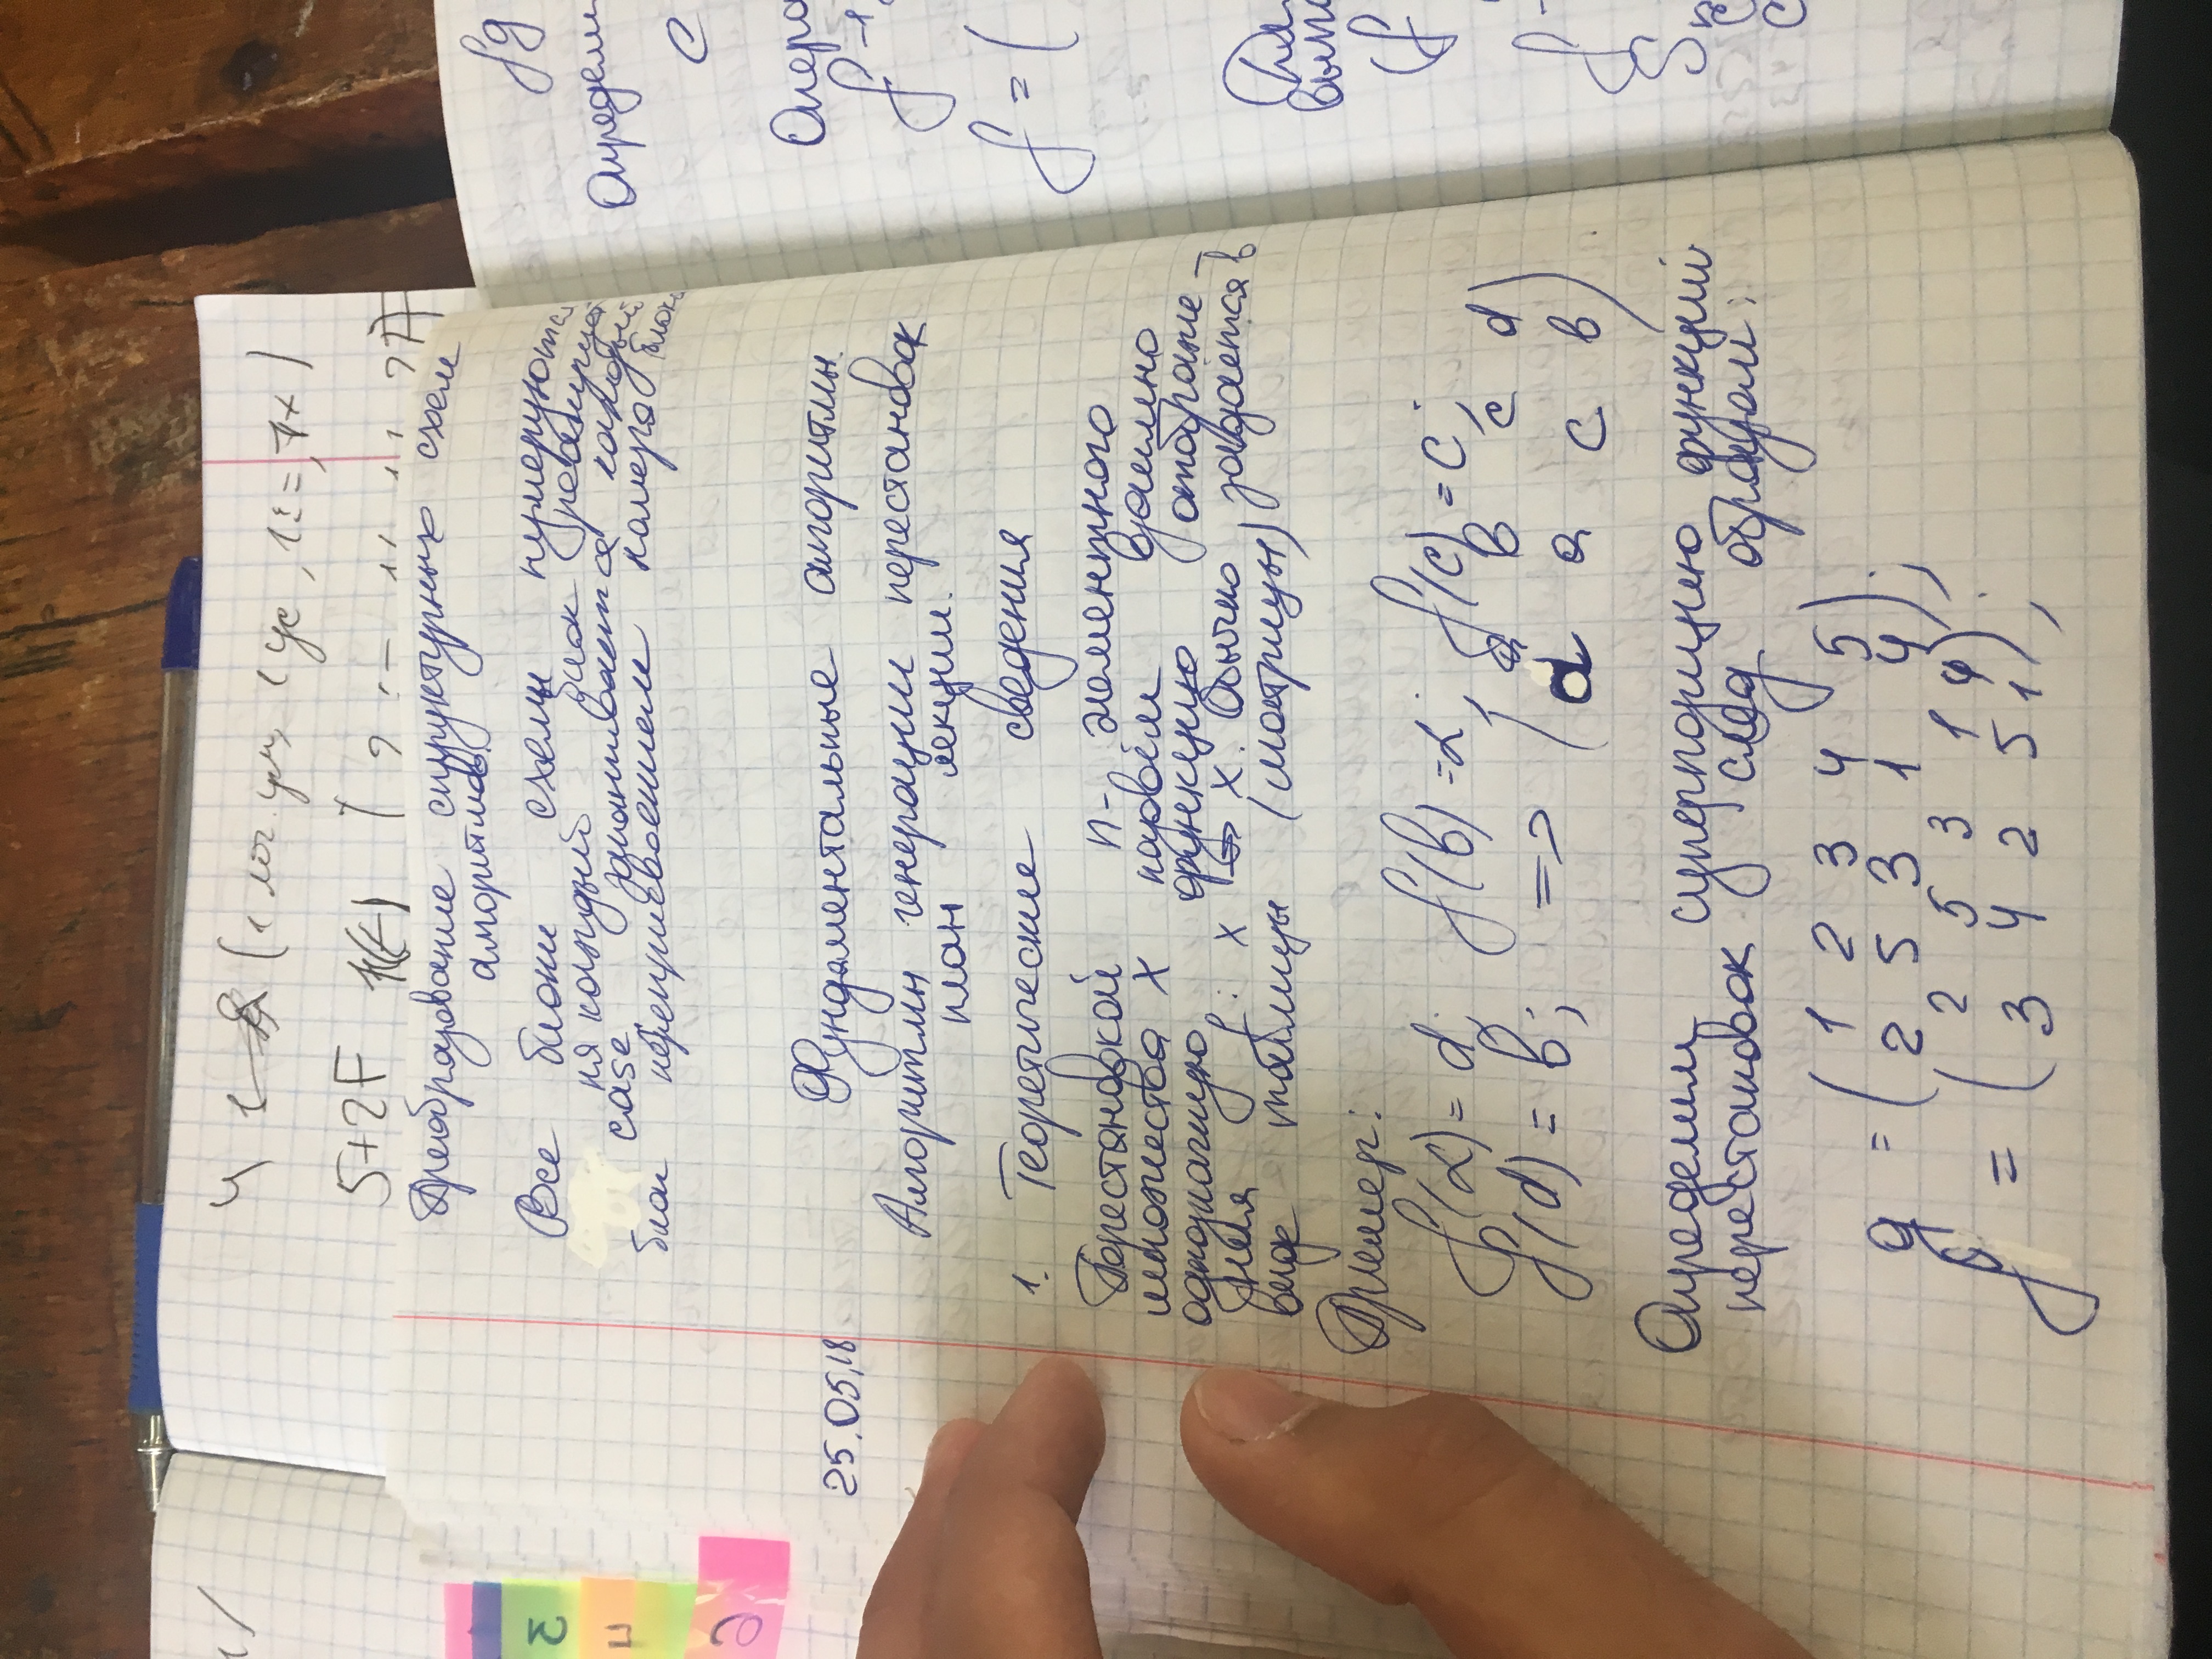 4 1 (1 лог. ум, 1 ус, 1:=, 7+)
5+2F
Преобразование структурных схем
алгоритмов.
Все блоки схемы нумеруются
ня каждый блок реализует
case заканчивается каждый
блок переприсвоением номера блока
25.05.18
Фундаментальные алгоритмы.
Алгоритмы генерации перестановок
план лекции.
1. Теоретические сведения
Перестановкой n-элементного
множества X назовём взаимно
однозначную функцию отображе-
ния f: x → x. Обычно задаётся в
виде таблицы (матрицы)
Пример:
f(α) = d; f(b) = α; f(c) = c;
f(d) = b; => ( a b c d )
( d a c b )
Определим суперпозицию функций
перестановок след образом:
g = ( 1 2 3 4 5 )
( 2 5 3 1 4 );
f = ( 2 5 3 1 4 )
( 3 4 2 5 1 );
fg
Определи
c
Опера
f⁻¹
f = (
Для
вып
(f
f⁻
S
c
3
4
6